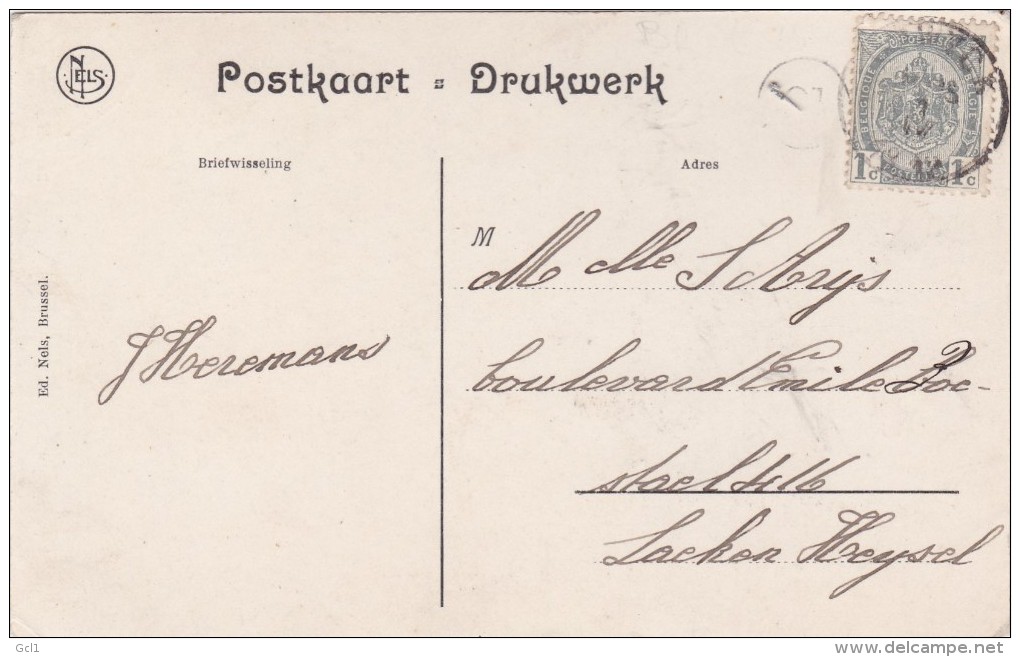 NELS
Postkaart = Drukwerk
BELGIQUE
POSTES
BELGIE
POSTERIJEN
1c 1c
Briefwisseling
Adres
M
M elle S Arijs
boulevard Emile Boc-
stael 416
Laeken Heysel
J Heremans
Ed. Nels, Brussel.
Gcl1
www.delcampe.net